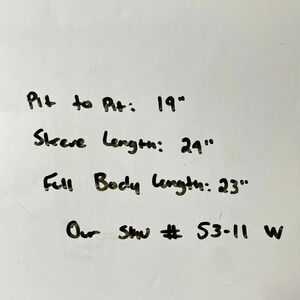 Pit to Pit: 19"
Sleeve Length: 24"
Full Body Length: 23"
Our Sku # 53-11 W